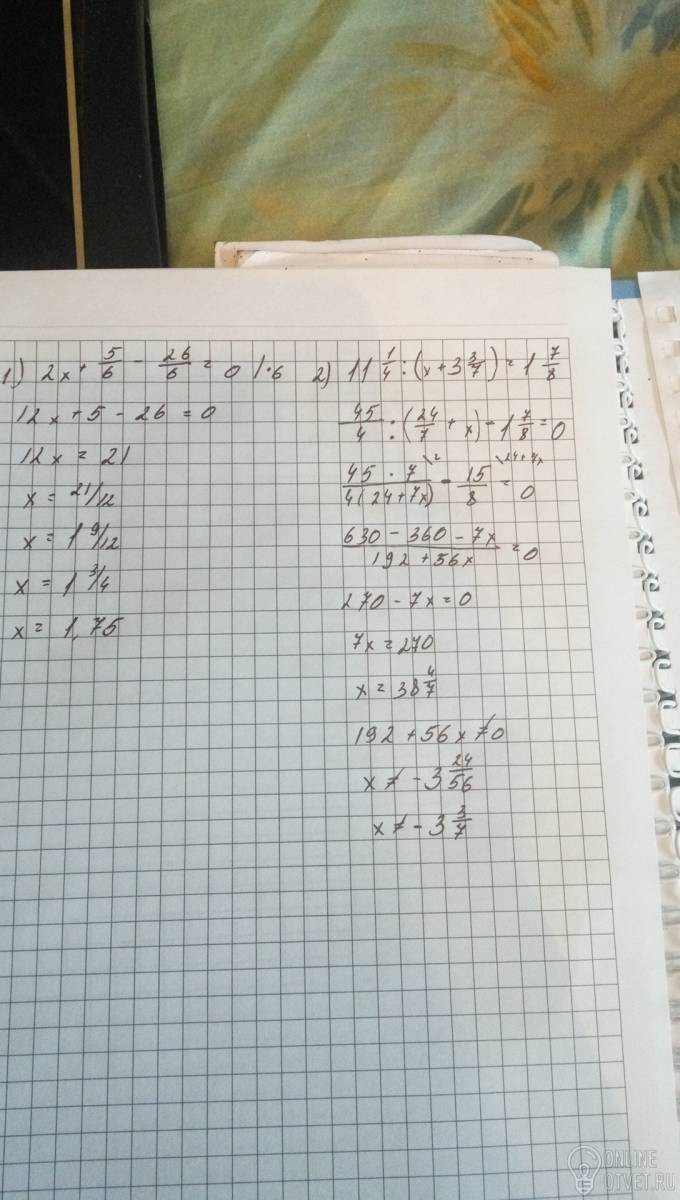 1) 2x + 5/6 - 26/6 = 0 |·6
12x + 5 - 26 = 0
12x = 21
x = 21/12
x = 1 9/12
x = 1 3/4
x = 1,75
2) 11 1/4 : (x + 3 3/7) = 1 7/8
45/4 : (24/7 + x) - 1 7/8 = 0
45 · 7/4(24+7x) \2 - 15/8 \24+7x = 0
630 - 360 - 7x/192 + 56x = 0
270 - 7x = 0
7x = 270
x = 38 4/7
192 + 56x ≠ 0
x ≠ - 3 24/56
x ≠ - 3 3/7
ONLINE
OTVET.RU